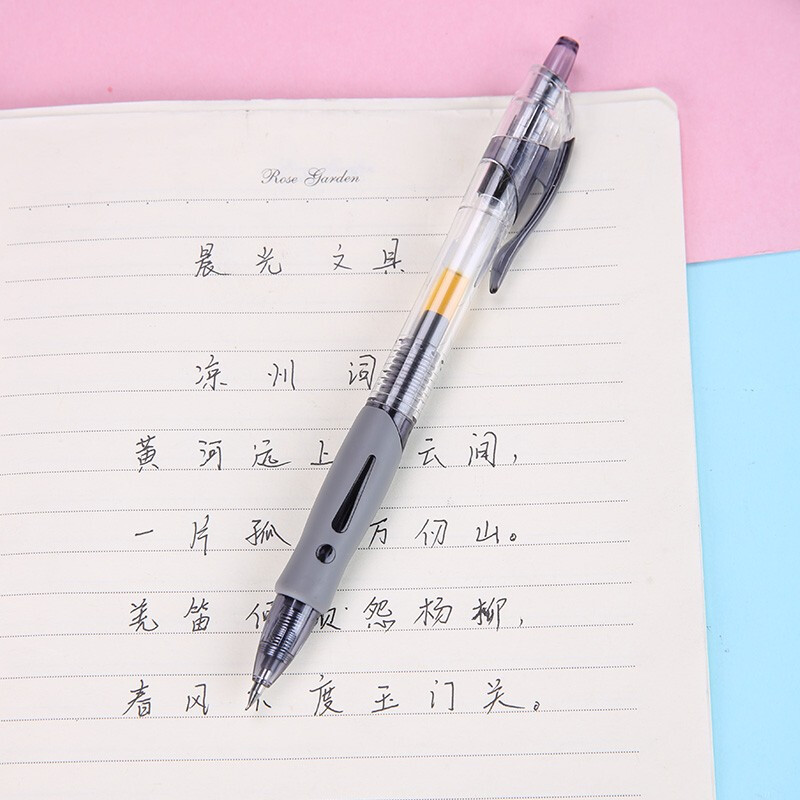 Rose Garden
晨光 文具
凉州词
黄河远上 云间,
一片孤 万仞山。
羌笛何须怨杨柳,
春风不度玉门关。